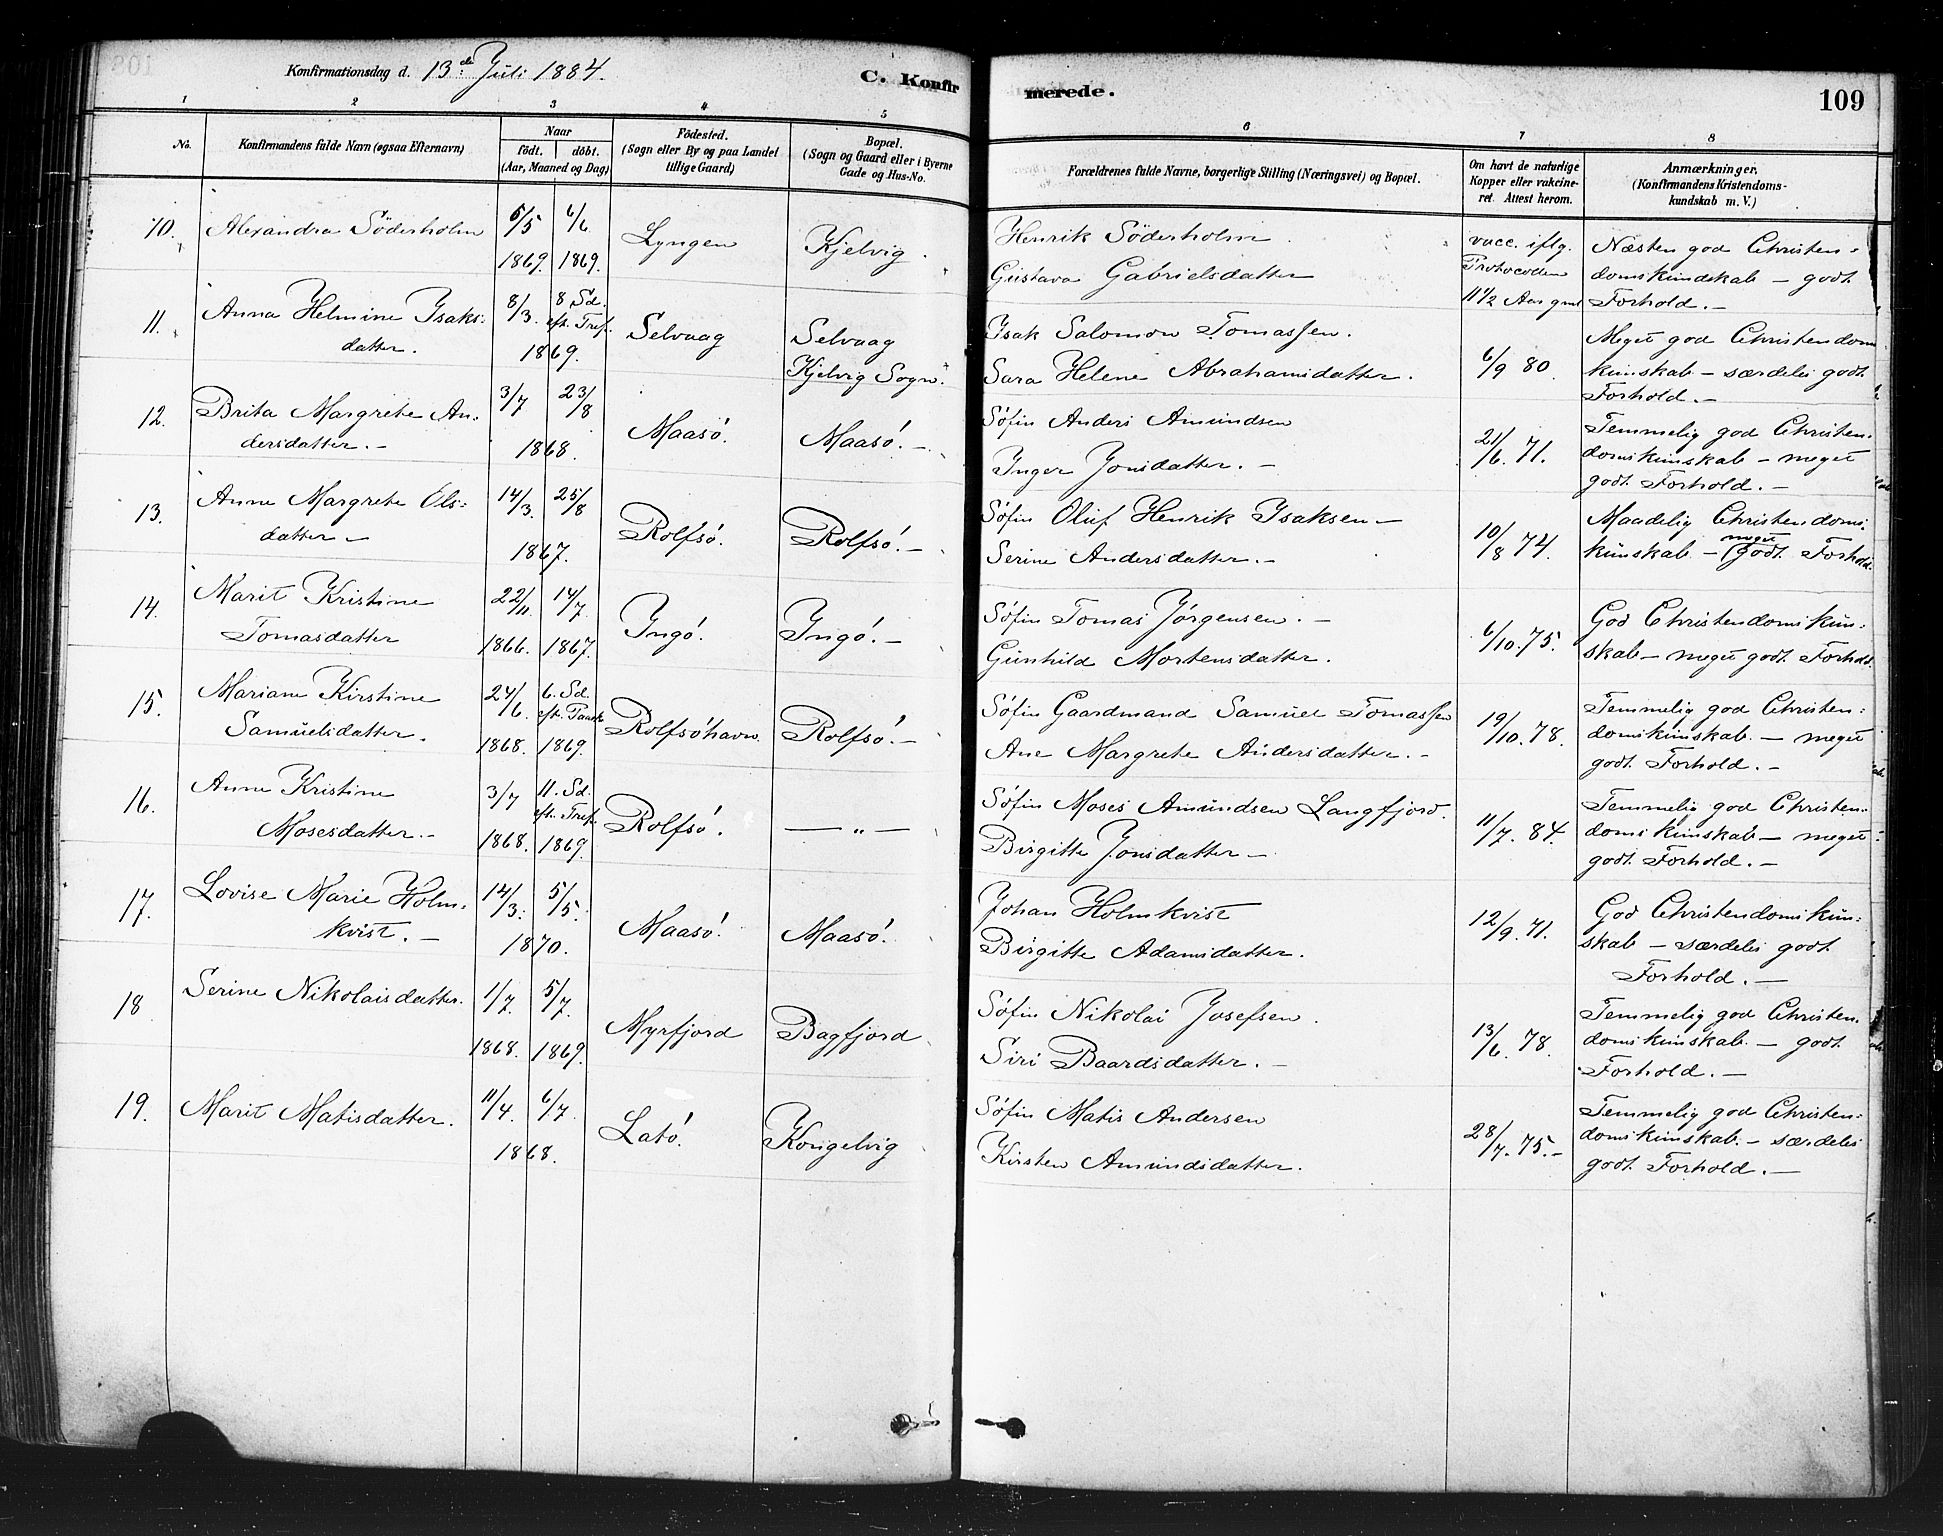 Konfirmationsdag d. 13de Juli 1884.
C. Konfirmerede.
109
1 2 3 4 5 6 7 8
No.
Konfirmandens fulde Navn (ogsaa Efternavn)
Naar
födt. döbt.
(Aar, Maaned og Dag)
Födested.
(Sogn eller By og paa Landet
tillige Gaard)
Bopæl.
(Sogn og Gaard eller i Byerne
Gade og Hus-No.
Forældrenes fulde Navne, borgerlige Stilling (Næringsvei) og Bopæl.
Om havt de naturlige
Kopper eller vakcine-
ret. Attest herom.
Anmærkninger.
(Konfirmandens Kristendoms-
kundskab m. V.)
10. Alexandra Söderholm 5/5 1869. 6/6 1869. Lyngen Kjelvig.
Henrik Söderholm
Gustava Gabrielsdatter
vacc. iflg.
Protocollen
11 1/2 Aar gml
Næsten god Christen-
domskundskab — godt
Forhold. —
11. Anna Helmine Isaks-
datter.
8/3. 8 Sd.
eft. Tref.
1869.
Selvaag
Selvaag
Kjelvig Sogn.
Isak Salomon Tomassen.
Sara Helene Abrahamsdatter.
6/9 80
Meget god Christendoms
kunskab — særdeles godt
Forhold. —
12. Brita Margrethe An-
dersdatter. —
3/7 23/8
1868.
Maasö.
Maasö. —
Söfin Anders Amundsen
Inger Jonsdatter. —
21/6. 71.
Temmelig god Christen-
domskunskab — meget
godt Forhold. —
13. Anne Margrete Ols-
datter —
14/3. 25/8
1867.
Rolfsö.
Rolfsö. —
Söfin Oluf Henrik Isaksen —
Serine Andersdatter. —
10/8 74.
Maadelig Christendoms-
kunskab — meget godt Forhold.
14. Marit Kristine
Tomasdatter
22/11 1866. 14/7 1867.
Ingö.
Ingö. —
Söfin Tomas Jørgensen. —
Gunhild Mortensdatter.
6/10. 75.
God Christendomskun-
skab — meget godt Forhold.
15. Mariane Kirstine
Samuelsdatter.
24/6 1868.
6. Sd.
eft. Paask
1869.
Rolfsöhavn
Rolfsö. —
Söfin Gaardmand Samuel Tomassen
Ane Margrete Andersdatter. —
19/10. 78.
Temmelig god Christen-
domskunskab. — meget
godt Forhold. —
16. Anne Kristine
Mosesdatter. —
3/7 1868.
11. Sd.
eft. Tref.
1869.
Rolfsö.
— „ —
Söfin Moses Amundsen Langfjord.
Birgitte Jonsdatter —
11/7. 84.
Temmelig god Christen-
domskunskab — meget
godt Forhold. —
17. Lovise Marie Holm-
kvist. —
14/3. 5/5.
1870.
Maasö.
Maasö.
Johan Holmkvist
Birgitte Adamsdatter.
12/9. 71.
God Christendomskun-
skab — særdeles godt
Forhold. —
18 Serine Nikolaisdatter.
1/7. 1868. 5/7. 1869.
Myrfjord
Bagfjord
Söfin Nikolai Josefsen.
Siri Baardsdatter. —
13/6. 78.
Temmelig god Christen-
domskunskab. — godt
Forhold. —
19. Marit Matisdatter.
11/4. 6/7.
1868.
Latö.
Kongelvig
Söfin Matis Andersen
Kirsten Amundsdatter.
28/7. 75. —
Temmelig god Christen-
domskunskab. — særdeles
godt Forhold. —